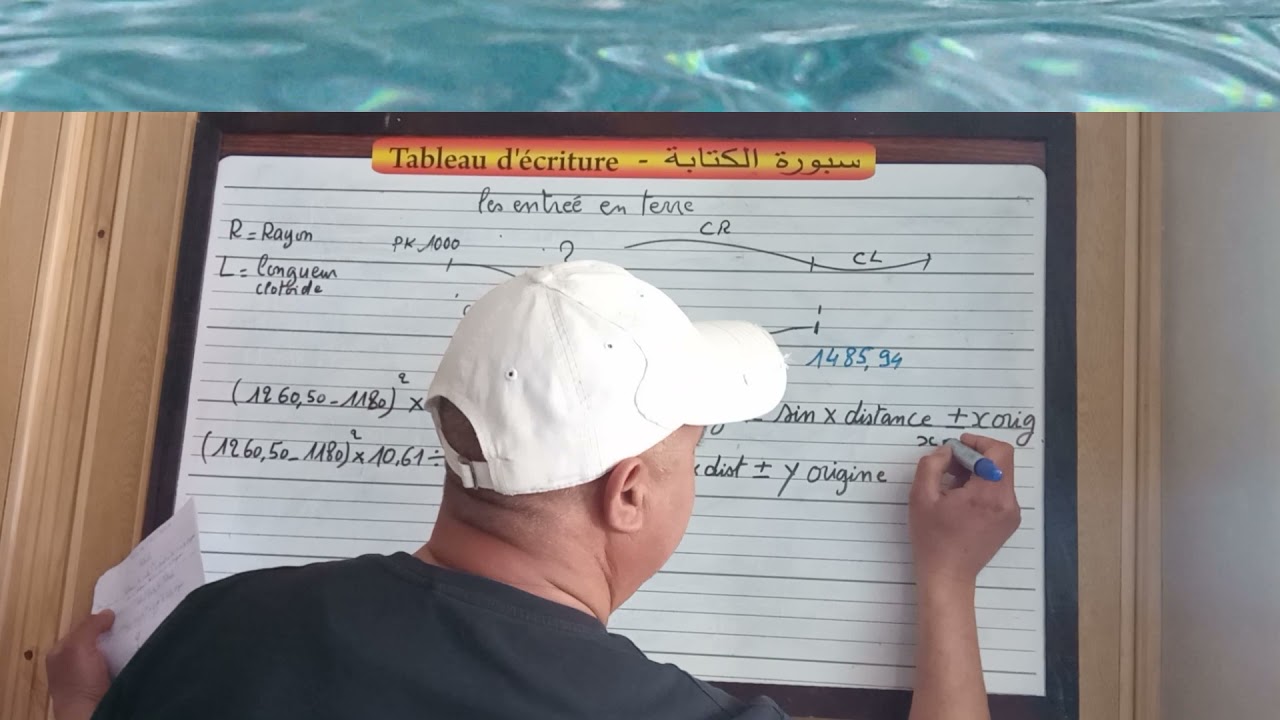 Tableau d'écriture - سبورة الكتابة
les entreé en terre
R = Rayon
PK 1000
?
CR
L = longueur
clotoide
CL
1485,94
(1260,50 - 1180)² ×
sin x distance ± x orig
(1260,50 - 1180)² × 10,61 ÷
x dist ± y origine